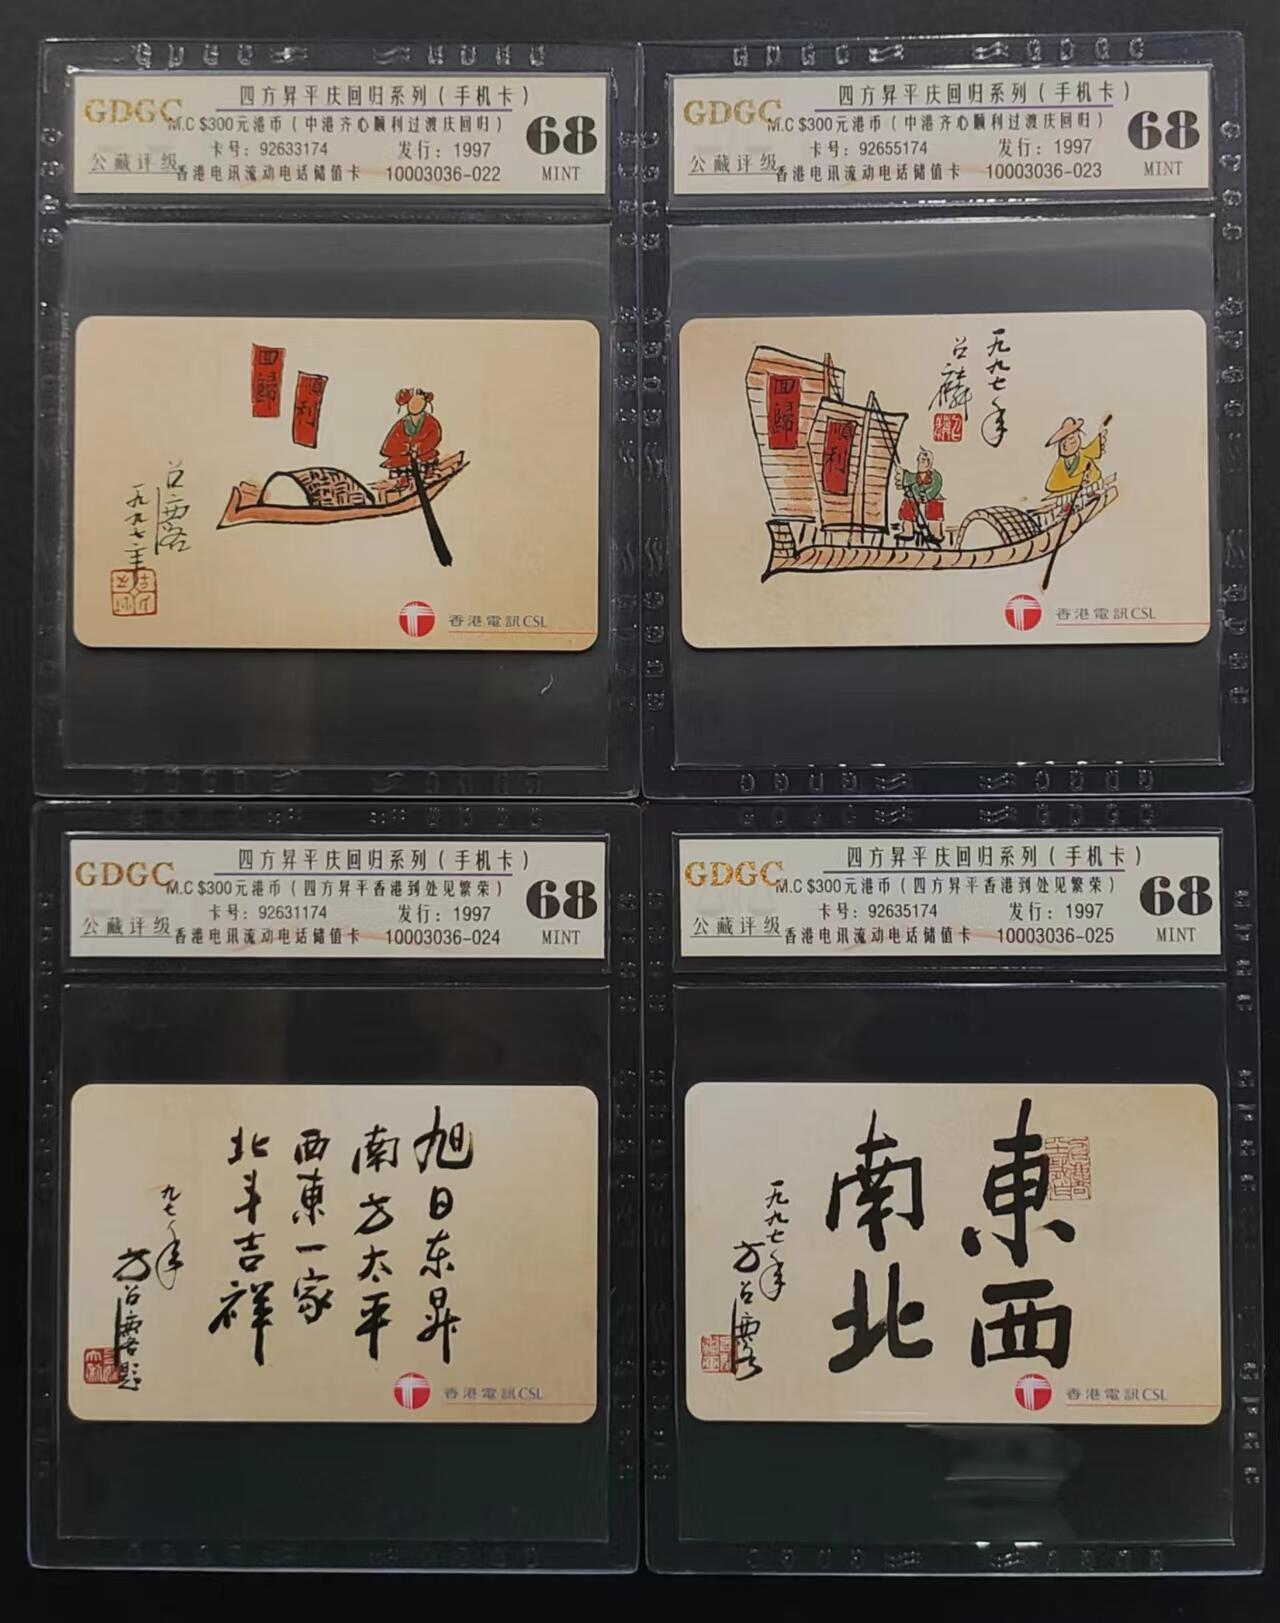 GDGC
公藏评级
四方昇平庆回归系列（手机卡）
M.C $300元港币（中港齐心顺利过渡庆回归）
卡号：92633174 发行：1997
香港电讯流动电话储值卡 10003036-022
68
MINT
回歸
順利
一九九七年
香港電訊CSL
GDGC
公藏评级
四方昇平庆回归系列（手机卡）
M.C $300元港币（中港齐心顺利过渡庆回归）
卡号：92655174 发行：1997
香港电讯流动电话储值卡 10003036-023
68
MINT
一九九七年
召麟
回歸
順利
香港電訊CSL
GDGC
公藏评级
四方昇平庆回归系列（手机卡）
M.C $300元港币（四方昇平香港到处见繁荣）
卡号：92631174 发行：1997
香港电讯流动电话储值卡 10003036-024
68
MINT
旭日东昇
南方太平
西東一家
北斗吉祥
九七年
方召麐题
香港電訊CSL
GDGC
公藏评级
四方昇平庆回归系列（手机卡）
M.C $300元港币（四方昇平香港到处见繁荣）
卡号：92635174 发行：1997
香港电讯流动电话储值卡 10003036-025
68
MINT
東西
南北
一九九七年
方召麐
香港電訊CSL